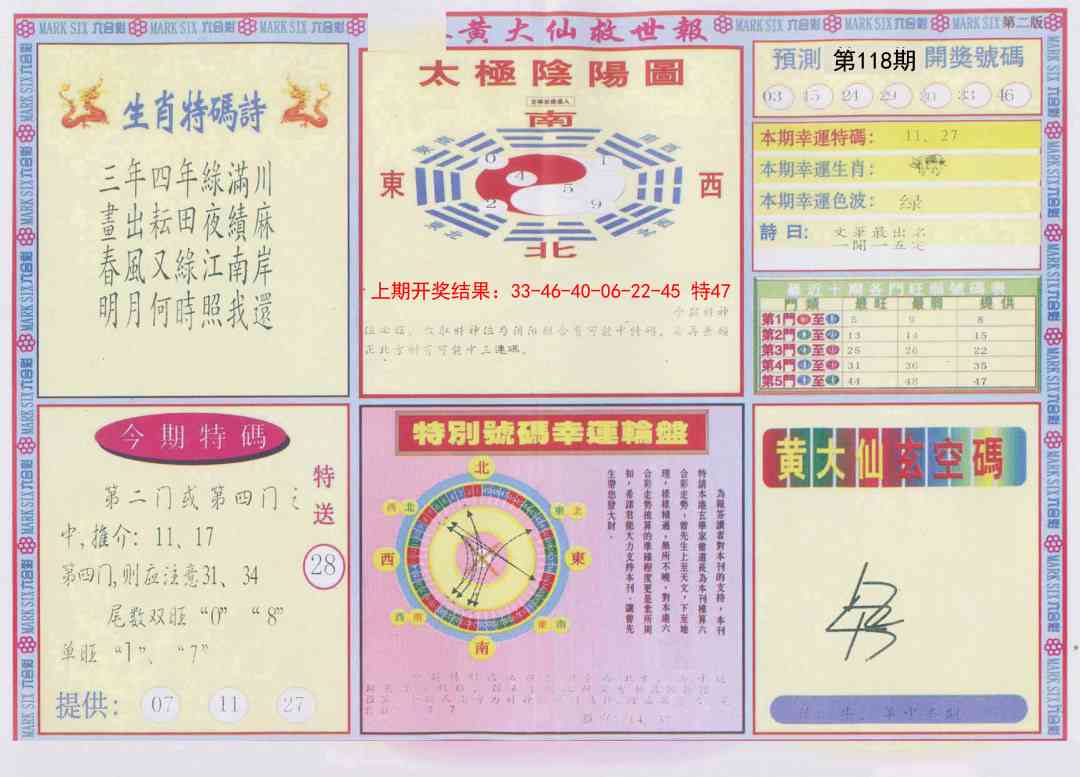 MARK SIX 六合彩
黄大仙救世報
第二版
生肖特碼詩
三年四年綠滿川
晝出耘田夜績麻
春風又綠江南岸
明月何時照我還
太極陰陽圖
南
東
西
北
0 1
4 5
2 9
上期开奖结果：33-46-40-06-22-45 特47
正北方则有可能中三連碼。
預測 第118期 開獎號碼
03 15 24 29 30 33 46
本期幸運特碼： 11、27
本期幸運生肖：
本期幸運色波： 绿
詩曰：
最近十期各門旺弱號碼表
門類 最旺 最弱 提供
第1門 至 5 9 8
第2門 至 13 14 15
第3門 至 25 26 22
第4門 至 31 36 35
第5門 至 44 48 47
今期特碼
第二门或第四门之
中,推介：11、17
第四门,则应注意31、34
尾数双旺“0”“8”
单旺“1”、“7”
特送
28
提供： 07 11 27
特別號碼幸運輪盤
北
西北
東北
西
東
西南
東南
南
為報答讀者對本刊的支持，本刊
特請本港玄學家曾道長為本刊推算六
合彩走勢，曾先生上至天文，下至地
理，樣樣精通，無所不曉，對本港六
合彩走勢推算的準確程度更是業所周
知，希諸君能大力支持本刊，讓曾先
生帶您發大財。
黄大仙玄空碼